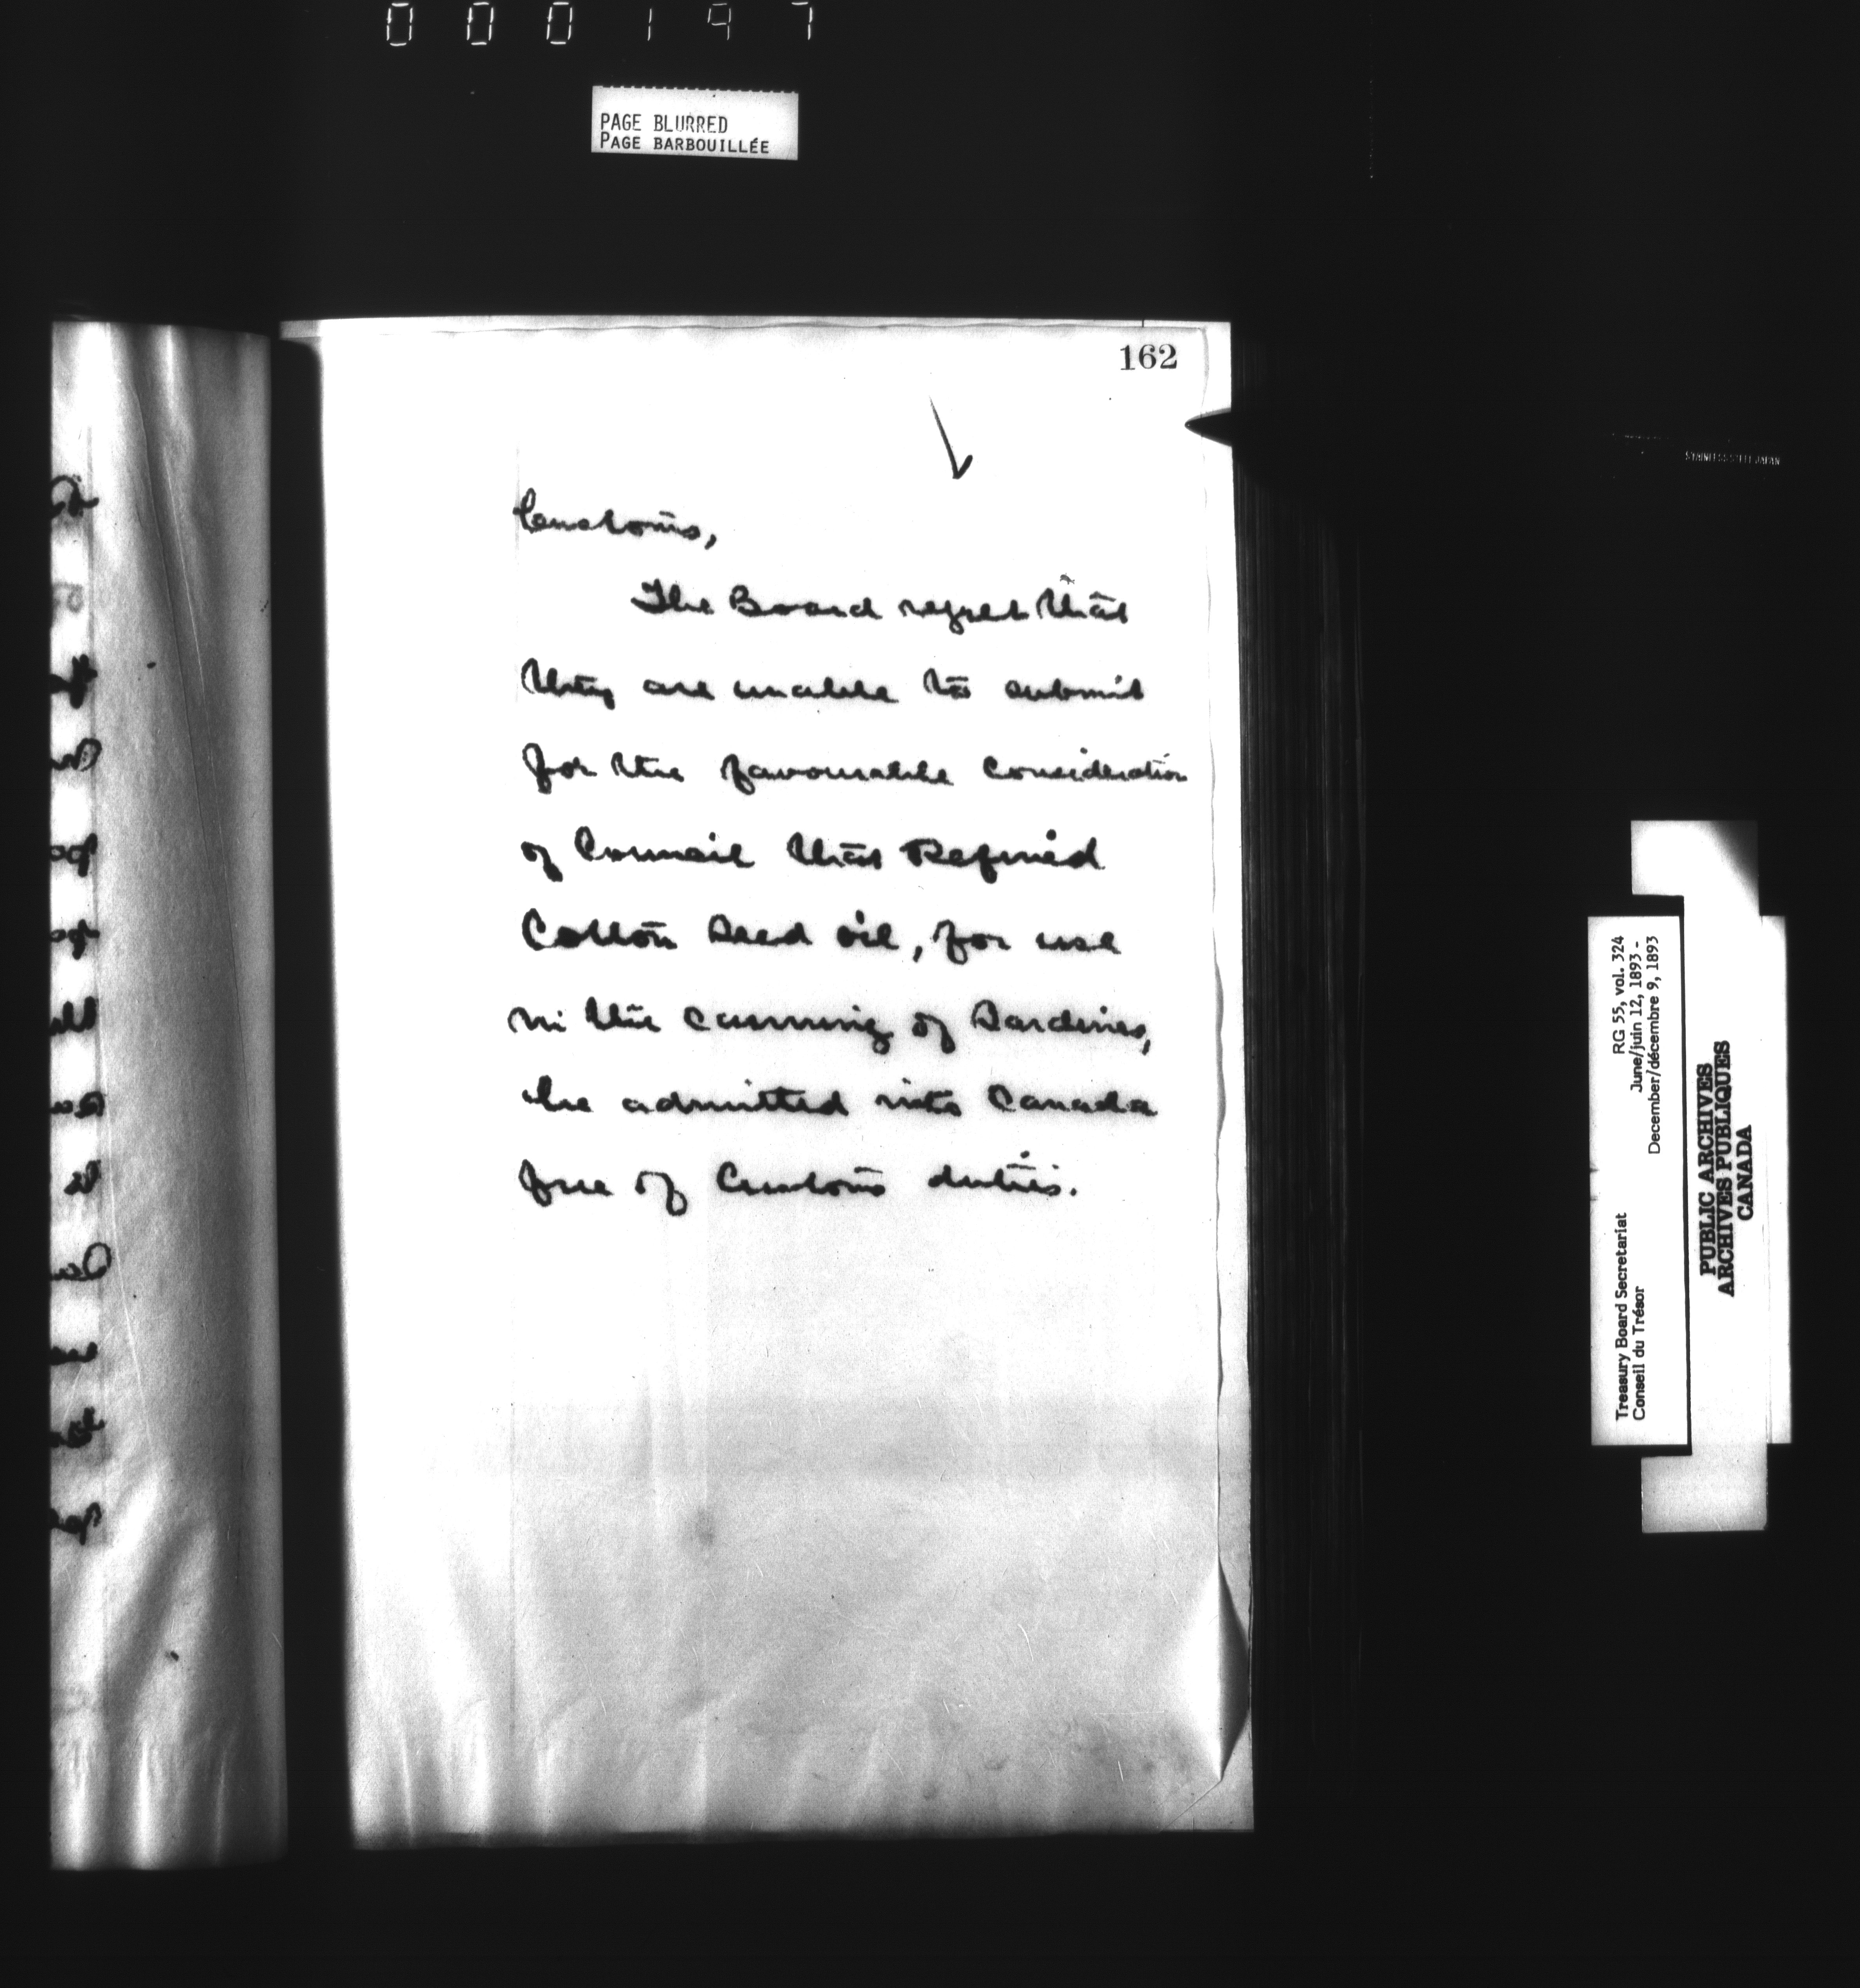 000197
PAGE BLURRED
PAGE BARBOUILLÉE
162
Customs,
The Board regret that
they are unable to submit
for the favourable consideration
of Council that Refined
Cotton Seed oil, for use
in the canning of Sardines,
be admitted into Canada
free of Customs duties.
STAINLESS STEEL JAPAN
RG 55, vol. 324
June/juin 12, 1893 -
December/décembre 9, 1893
Treasury Board Secretariat
Conseil du Trésor
PUBLIC ARCHIVES
ARCHIVES PUBLIQUES
CANADA